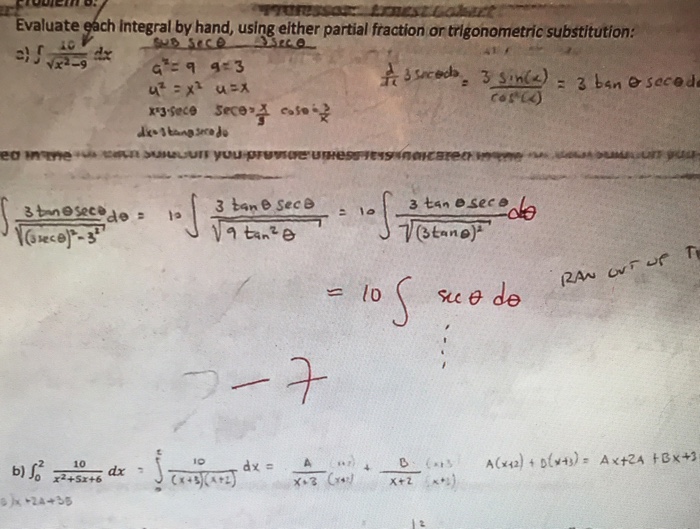 Evaluate each integral by hand, using either partial fraction or trigonometric substitution:
a) ∫ 10/√(x²-9) dx
sub sec θ 3 sec θ
a² = 9 a = 3
u² = x² u = x
x=3·secθ secθ = x/3 cosθ = 3/x
dx = 3 tanθ secθ dθ
3 secθ dθ = 3 sin(x)/cos²(x) = 3 tan θ sec θ
∫ 3 tanθ secθ/√((3secθ)²-3²) dθ = 10 ∫ 3 tan θ sec θ/√(9 tan² θ) = 10 ∫ 3 tan θ sec θ/√((3 tan θ)²) dθ
= 10 ∫ sec θ dθ
RAN OUT OF
- 7
b) ∫₀² 10/(x²+5x+6) dx = ∫₀² 10/((x+3)(x+2)) dx = A/(x+3) (x+2)/(x+2) + B/(x+2) (x+3)/(x+3) A(x+2) + B(x+3) = Ax+2A+Bx+3
+2A+3B